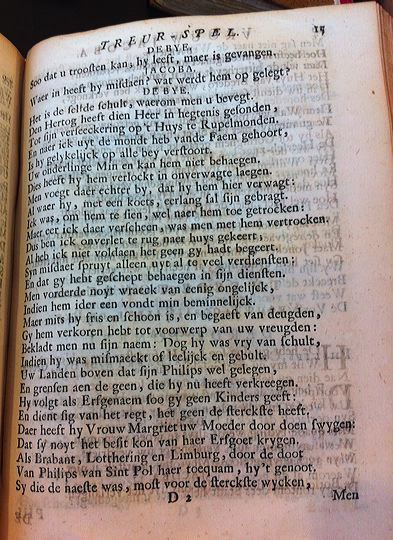 TREUR-SPEL. 15
DE BYE.
Soo dat u troosten kan, hy leeft, maer is gevangen.
JACOBA.
Waer in heeft hy misdaen? war werdt hem op gelegt?
DE BYE.
Het is de selfde schult, waerom men u bevegt.
Den Hertog heeft dien Heer in hegtenis gesonden,
Tot sijn verseeckering op't Huys te Rupelmonden.
En naer ick uyt de mondt heb vande Faem gehoort,
Is hy gelykelijck op alle bey verstoort.
Uw onderlinge Min en kan hem niet behaegen.
Dies heeft hy hem verlockt in onverwagte laegen.
Men voegt daer echter by, dat hy hem hier verwagt:
Al waer hy, met een koets, eerlang sal sijn gebragt.
Ick was, om hem te sien, wel naer hem toe getrocken:
Maer eer ick daer verscheen, was men met hem vertrocken.
Dus ben ick onverlet te rug naer huys gekeert,
Al heb ick niet voldaen het geen gy hadt begeert.
Syn misdaet spruyt alleen uyt al te veel verdiensten:
En dat gy hebt geschept behaegen in sijn diensten.
Men vorderde noyt wraeck van eenig ongelijck,
Indien hem ider een vondt min beminnelijck.
Maer mits hy fris en schoon is, en begaeft van deugden,
Gy hem verkoren hebt tot voorwerp van uw vreugden:
Bekladt men nu sijn naem: Dog hy was vry van schult,
Indien hy was mismaeckt of leelijck en gebult.
Uw Landen boven dat sijn Philips wel gelegen,
En grensen aen de geen, die hy nu heeft verkreegen.
Hy volgt als Erfgenaem soo gy geen Kinders geeft:
En dient sig van het regt, het geen de sterckste heeft.
Daer heeft hy Vrouw Margriet uw Moeder door doen swygen:
Dat sy noyt het besit kon van haer Erfgoet krygen.
Als Brabant, Lotthering en Limburg, door de doot
Van Philips van Sint Pol haer toequam, hy't genoot.
Sy die de naeste was, most voor de sterckste wycken,
D 2 Men